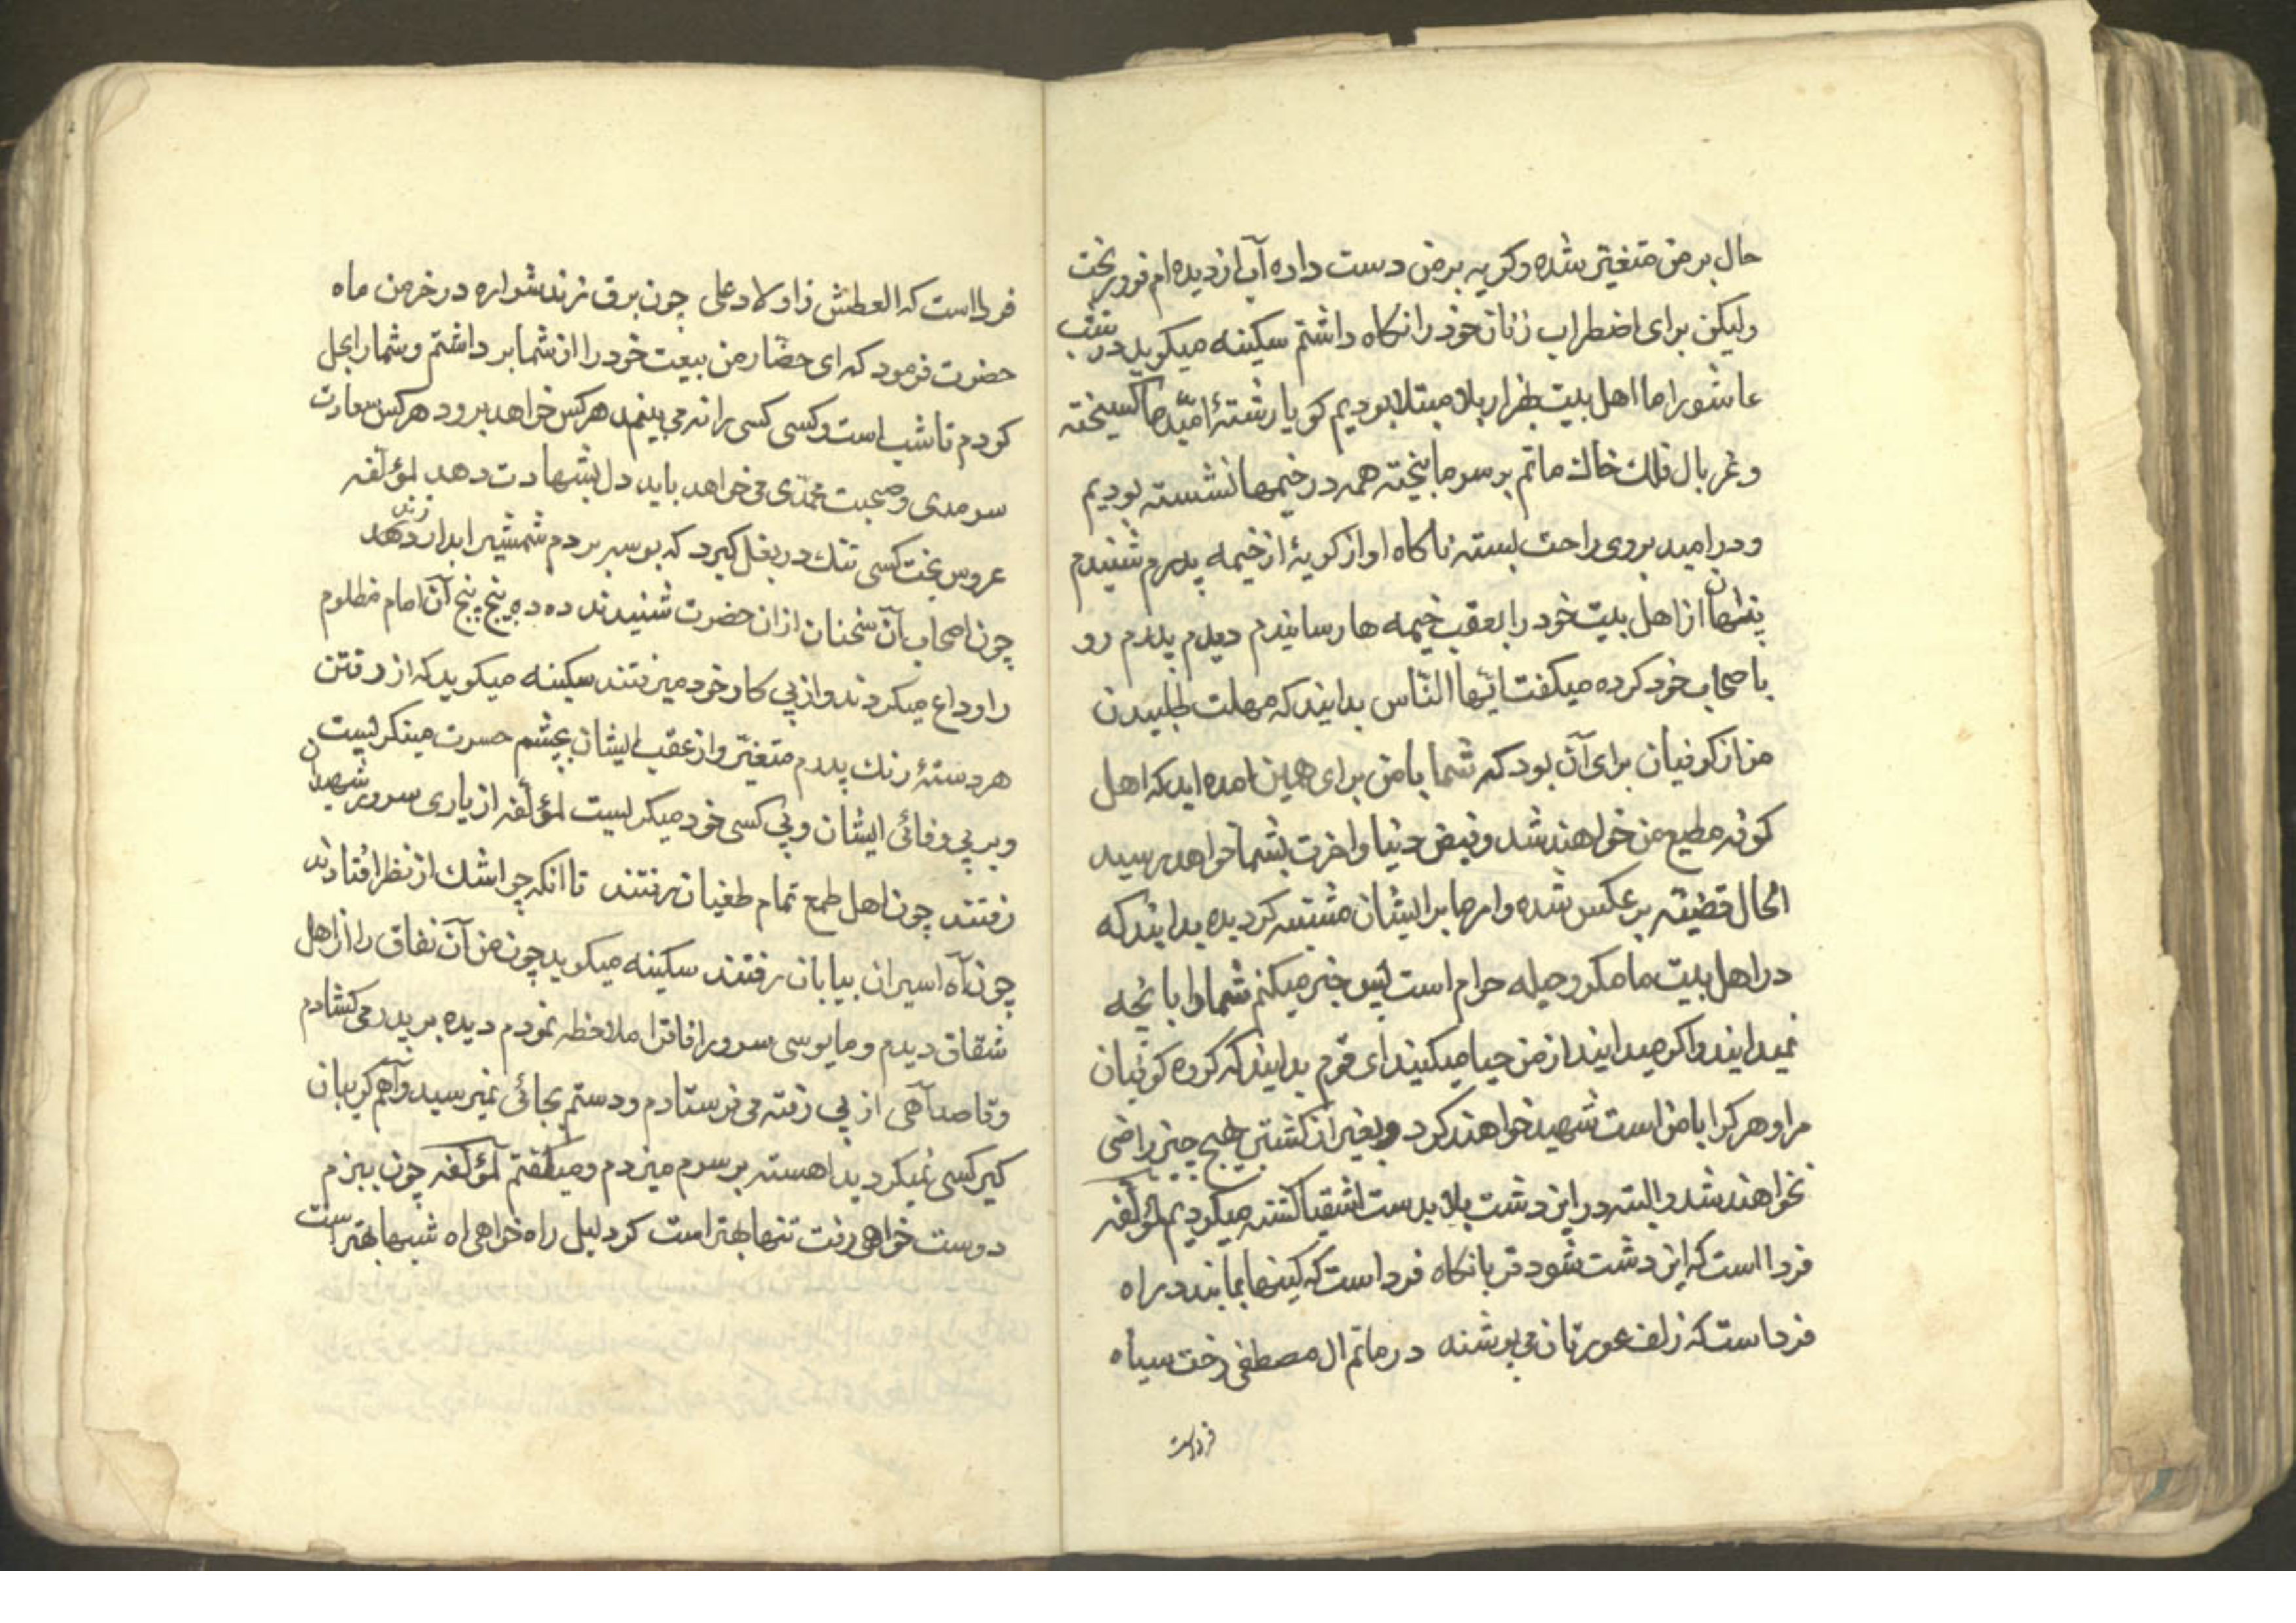 حال بر من متغیّر شده و کریه بر من دست داده آب از دیده ام فرو ریخت
ولیکن برای اضطراب زنان خود را نکاه داشتم سکینه میکوید در شب
عاشورا ما اهل بیت بهزار بلا مبتلا بودیم کویا رشتهٔ امّید ما کسیخته
و غربال فلک خاک ماتم بر سر ما بیخته همه در خیمها نشسته بودیم
و در امید بروی راحت بسته ناکاه اواز کریهٔ از خیمه پدرم شنیدم
پنهان از اهل بیت خود را بعقب خیمه ها رسانیدم دیدم پدرم رو
باصحاب خود کرده میکفت ایّها النّاس بدانید که مهلت طلبیدن
من از کوفیان برای آن بود که شما با من برای همین امده اید که اهل
کوفه مطیع من خواهند شد و فیض دنیا و اخرت بشما خواهد رسید
الحال قضیّه بر عکس شده و امرها بر ایشان مشتبه کردیده بدانید که
در اهل بیت ما مکر و حیله حرام است پس خبر میکنم شما را بانچه
نمیدانید و اکر میدانید از من حیا میکنید ای قوم بدانید که کروه کوفیان
مرا و هر کرا با من است شهید خواهند کرد و بغیر از کشتن بهیچ چیز راضی
نخواهند شد و البته در این دشت بلا بدست اشقیا کشته میکردیم لمؤلّفه
فردا است که این دشت شود قربانکاه فرداست که کینها نمایند در راه
فرداست که زلف عورتان می پوشند در ماتم ال مصطفی رخت سیاه
فرداست
فردا است که العطش ز اولاد علی چون برق زند شراره در خرمن ماه
حضرت فرمود که ای حضّار من بیعت خود را از شما بر داشتم و شما را بحل
کردم تا شب است و کسی کسی را نه می بیند هر کس خواهد برود هر کس سعادت
سرمدی و صحبت محمّدی می خواهد باید دل بشهادت دهد لمؤلّفه
عروس بخت کسی تنک در بغل کیرد که بوسه بر دم شمشیر ابدار دهد زند
چون اصحاب آن سخنان از ان حضرت شنیدند ده ده پنج پنج آن امام مظلوم
را وداع میکردند و از پی کار خود میرفتند سکینه میکوید که از رفتن
هر دستهٔ رنک پدرم متغیّر و از عقب ایشان بچشم حسرت مینکریست
و بر بی وفائی ایشان و بی کسی خود میکریست لمؤلّفه از یاری سرور شهیدان
رفتند چون اهل طمع تمام طغیان رفتند تا انکه چو اشک از نظر افتادند
چون آه اسیران بیابان رفتند سکینه میکوید چون من آن نفاق را از اهل
شقاق دیدم و مایوسی سرور افاق را ملاحظه نمودم دیده بر پدر می کشادم
و قاصد آهی از پی رفته می فرستادم و دستم بجائی نمیرسید و آهم کریبان
کیر کسی نمیکردید اهسته بر سرم میزدم و میکفتم لمؤلّفه چون ببزم
دوست خواهی رفت تنها بهتر است کر دلیل راه خواهی اه شبها بهتر است